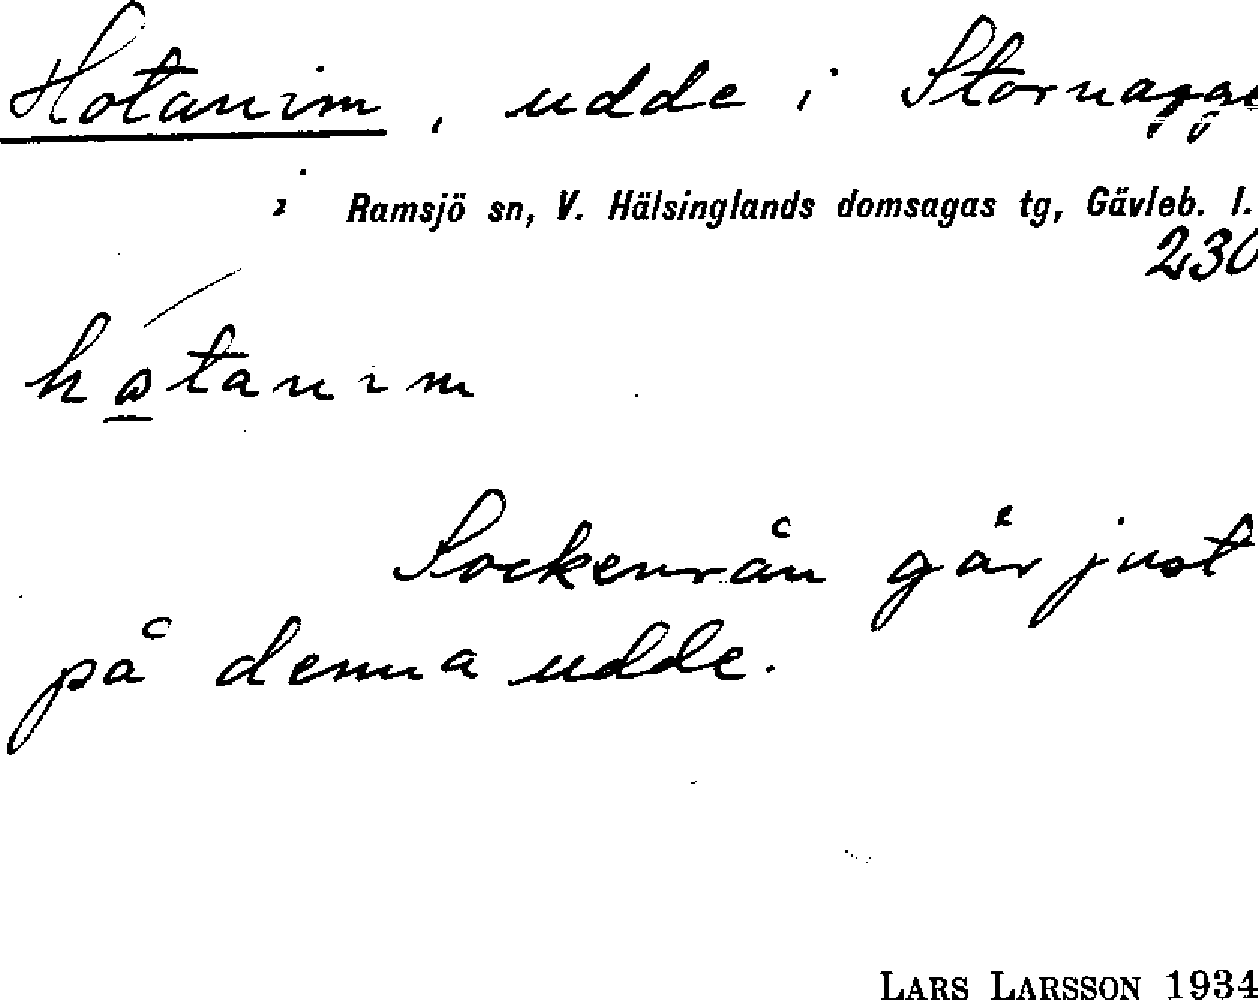 Hotanim, udde i Stornagge
i Ramsjö sn, V. Hälsinglands domsagas tg, Gävleb. l.
230
hotanim
Sockenrån går just
på denna udde.
LARS LARSSON 1934